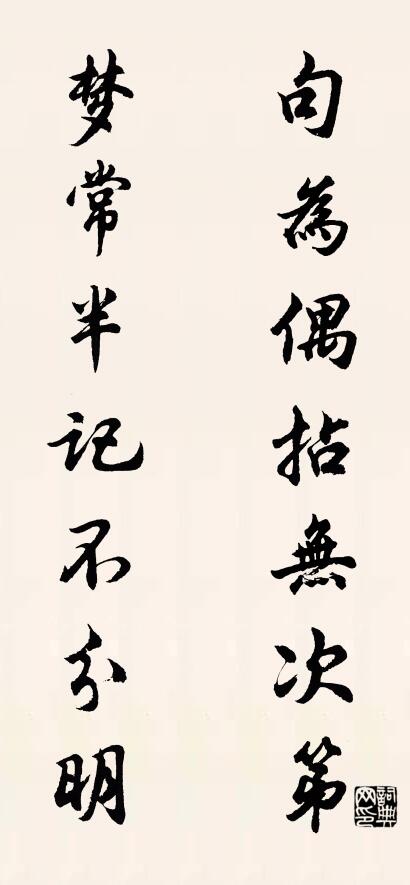 句為偶拈無次第
梦常半记不分明
詞典网印